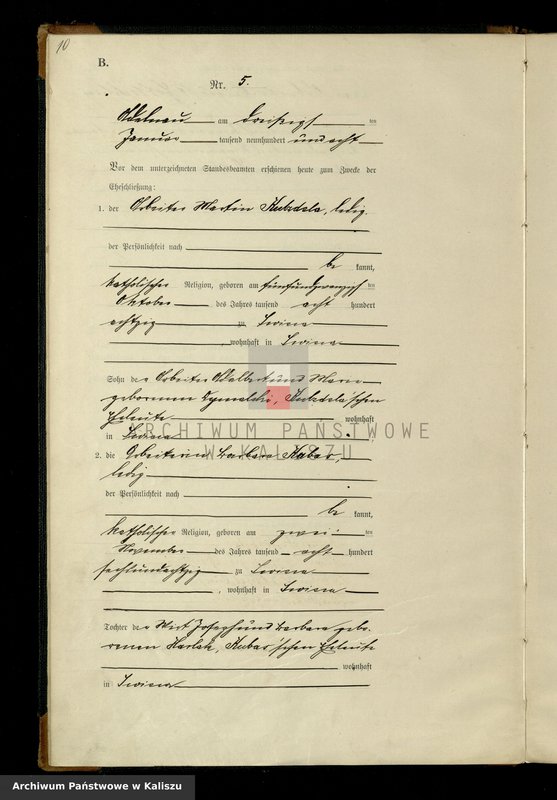 10
B.
Nr. 5.
Adelnau am dreißigs ten
Januar tausend neunhundert und acht
Vor dem unterzeichneten Standesbeamten erschienen heute zum Zwecke der
Eheschließung:
1. der Arbeiter Martin Kubzdela, ledig,
der Persönlichkeit nach
be kannt,
katholischer Religion, geboren am fünfundzwanzigs ten
Oktober des Jahres tausend acht hundert
achtzig zu
, wohnhaft in
Sohn des Arbeiters Adalbert und Marie
geborenen Kubzdela'schen
Eheleute wohnhaft
in
ARCHIWUM PAŃSTWOWE
W KALISZU
2. die Arbeiterin Barbara Kubas,
ledig
der Persönlichkeit nach
be kannt,
katholischer Religion, geboren am zwei ten
November des Jahres tausend acht hundert
sechsundachtzig zu
, wohnhaft in
Tochter des Wirt Joseph und Barbara gebo-
renen Kubas'schen Eheleute
wohnhaft
in
Archiwum Państwowe w Kaliszu